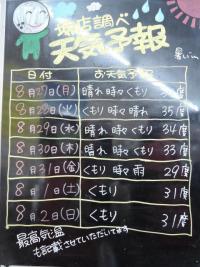 店調べ
天気予報
日付 お天気予報
8月27日(月) 晴れ時々くもり 度
8月28日(火) くもり時々晴れ 35度
8月29日(水) 晴れ時々くもり 34度
8月30日(木) 晴れ時々くもり 33度
8月31日(金) くもり時々雨 29度
8月1日(土) くもり 31度
8月2日(日) くもり 31度
最高気温
も記載させていただいてます